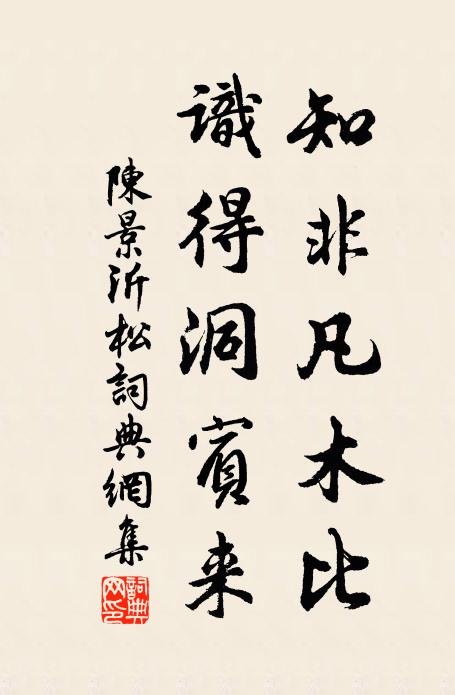 知非凡木比
識得洞賓来
陳景沂松詞典網集
詞典网印